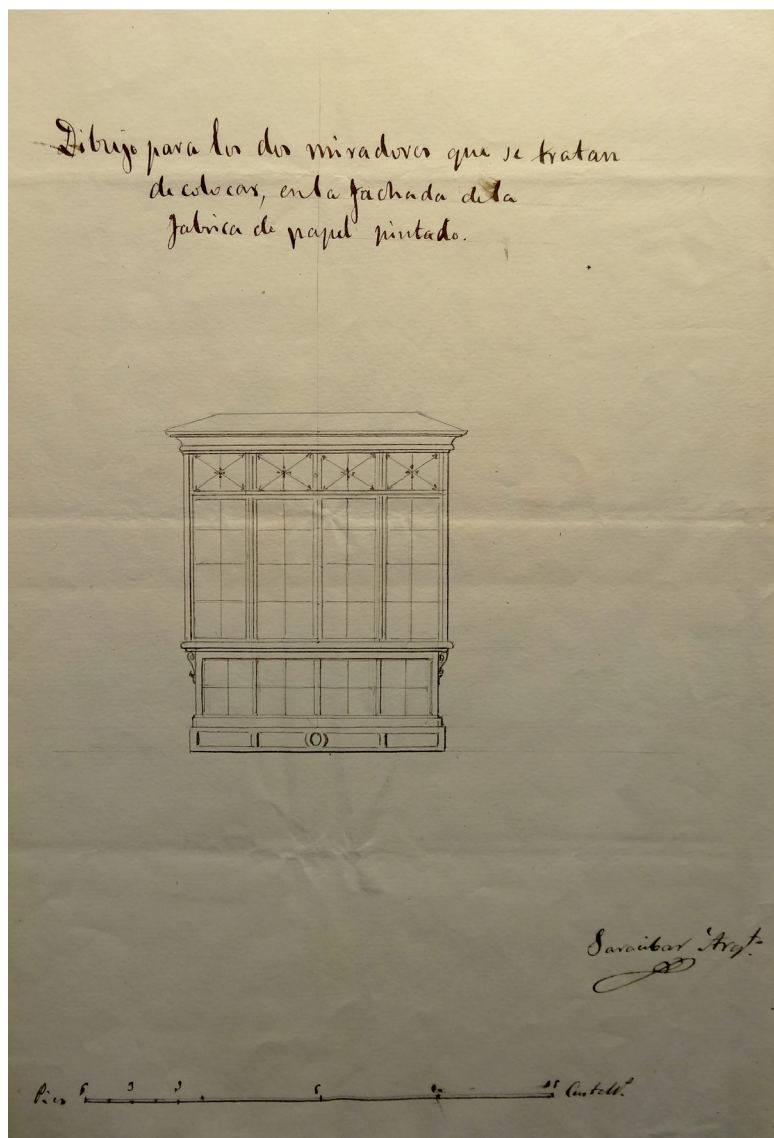 Dibujo para los dos miradores que se tratan
de colocar, en la fachada de la
fabrica de papel pintado.
Saracibar Arqt.
Pies
Castells.